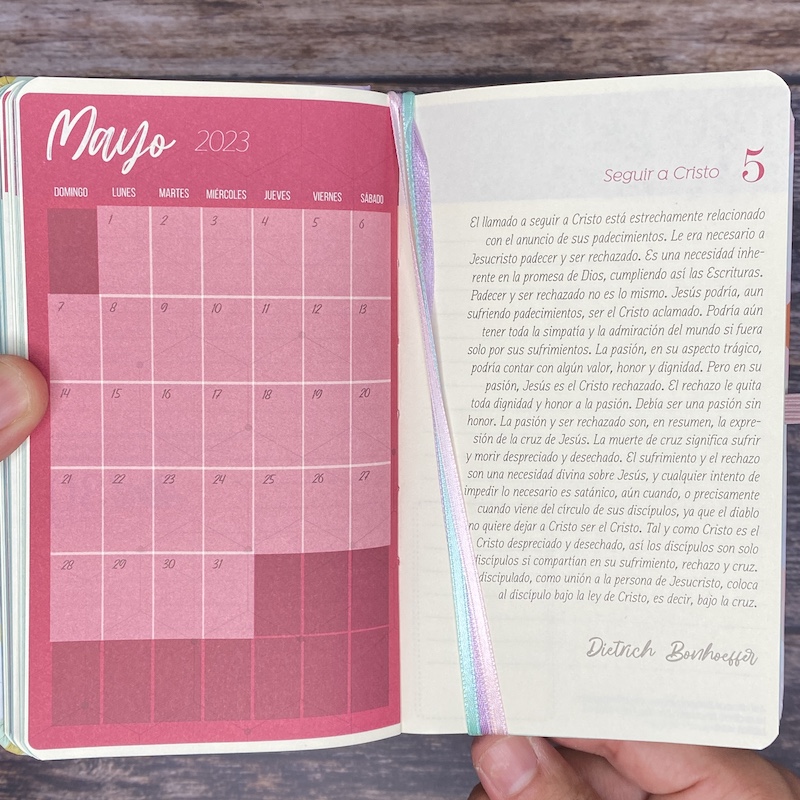 Mayo 2023
DOMINGO LUNES MARTES MIÉRCOLES JUEVES VIERNES SÁBADO
1 2 3 4 5 6
7 8 9 10 11 12 13
14 15 16 17 18 19 20
21 22 23 24 25 26 27
28 29 30 31
Seguir a Cristo 5
El llamado a seguir a Cristo está estrechamente relacionado
con el anuncio de sus padecimientos. Le era necesario a
Jesucristo padecer y ser rechazado. Es una necesidad inhe-
rente en la promesa de Dios, cumpliendo así las Escrituras.
Padecer y ser rechazado no es lo mismo. Jesús podría, aun
sufriendo padecimientos, ser el Cristo aclamado. Podría aún
tener toda la simpatía y la admiración del mundo si fuera
solo por sus sufrimientos. La pasión, en su aspecto trágico,
podría contar con algún valor, honor y dignidad. Pero en su
pasión, Jesús es el Cristo rechazado. El rechazo le quita
toda dignidad y honor a la pasión. Debía ser una pasión sin
honor. La pasión y ser rechazado son, en resumen, la expre-
sión de la cruz de Jesús. La muerte de cruz significa sufrir
y morir despreciado y desechado. El sufrimiento y el rechazo
son una necesidad divina sobre Jesús, y cualquier intento de
impedir lo necesario es satánico, aún cuando, o precisamente
cuando viene del círculo de sus discípulos, ya que el diablo
no quiere dejar a Cristo ser el Cristo. Tal y como Cristo es el
Cristo despreciado y desechado, así los discípulos son solo
discípulos si compartían en su sufrimiento, rechazo y cruz.
discipulado, como unión a la persona de Jesucristo, coloca
al discípulo bajo la ley de Cristo, es decir, bajo la cruz.
Dietrich Bonhoeffer